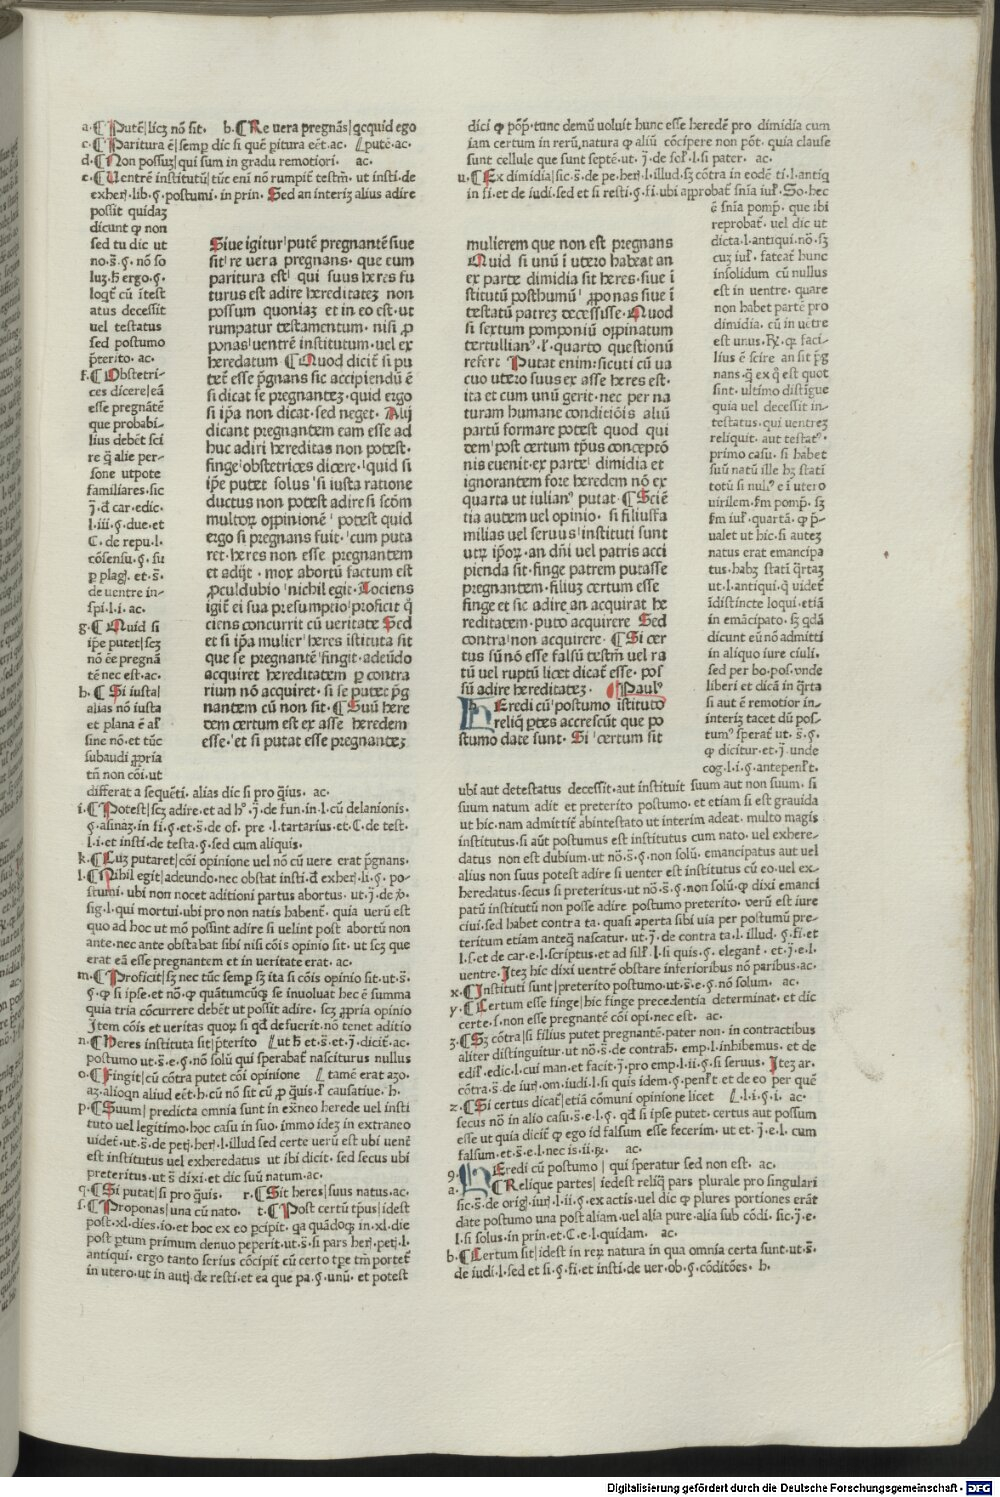 a.¶ Putē|licꝫ nō sit. b.¶ Re vera pregnās|qcquid ego
c.¶ Paritura ē|semꝑ dic si quē ꝑitura eēt.ac. putē.ac.
d.¶ Non possuꝫ|qui sum in gradu remotiori. ac.
e.¶ Uentrē institutū|tūc eni nō rumpit̄ testm̄. ut insti.de
exherꝫ.lib.§.postumi.in prin. Sed an interiꝫ alius adire
possit quidaꝫ
dicunt ꝙ non
sed tu dic ut
no.s̄.§.nō so
luꝫ.ħ ergo.§.
loqt̄ cū ītest
atus decessit
uel testatus
sed postumo
p̄terito. ac.
f.¶ Obstetri-
ces dicere|eā
esse pregnātē
que probabi-
lius debēt sci
re q̄ alie per-
sone utpote
familiares.sic
j̄.đ car.edic.
l.iii.§.due.et
C. de repu.l.
cōsensu.§.su
ꝑ plagꝭ.et.s̄.
de uentre in-
spi.l.i. ac.
g.¶ Quid si
ip̄e putet|scꝫ
nō eē pregnā
tē nec est.ac.
h.¶ Si iusta|
alias nō iusta
et plana ē al'
sine nō.et tūc
subaudi ꝓpria
tn̄ non cōi.ut
differat a sequēti. alias dic si pro q̄uis. ac.
i.¶ Potest|scꝫ adire.et ad hͦ.j̄.de fun.in l.cū delanionis.
§.asinaꝫ.in fi.§.et.s̄.de of. pre.l.tartarius.et.C.de test.
l.i.et insti.de testa.§.sed cum aliquis.
k.¶ Cuꝫ putaret|cōi opinione uel nō cū uere erat p̄gnans.
l.¶ Nihil egit|adeundo.nec obstat insti.đ exherꝫ.li.§.po-
stumi.ubi non nocet aditioni partus abortus.ut.j̄.de
sig.l.qui mortui.ubi pro non natis habent̄. quia uerū est
quo ad hoc ut mō possint adire si uelint post abortū non
ante.nec ante obstabat sibi nisi cōis opinio sit.ut scꝫ que
erat eā esse pregnantem et in veritate erat. ac.
m.¶ Proficit|sꝫ nec tūc semꝑ sꝫ ita si cōis opinio sit.ut.s̄.
§.ꝙ si ipse.et nō.ꝙ quātumcūqꝫ se inuoluat hec ē summa
quia tria cōcurrere debēt ut possit adire. scꝫ ꝓpria opinio
Item cōis et veritas quoꝝ si qđ defuerit.nō tenet aditio
n.¶ Heres instituta sit|p̄terito ut ħ et.s̄.et.j̄.dicit̄.ac.
postumo ut.s̄.e.§.nō solū qui sperabat̄ nasciturus nullus
o.¶ Fingit|cū cōtra putet cōi opinione tamē erat aꝫo.
aꝫ.alioqn aliud eēt.h.cū nō sit cū ꝓ q̄uis.ł causatiue.h.
p.¶ Suum|predicta omnia sunt in exn̄eo herede uel insti
tuto uel legitimo.hoc casu in suo.immo ideꝫ in extraneo
uidet̄.ut.s̄.de petꝭ.herꝭ.l.illud sed certe uerū est ubi uent̄
est institutus uel exheredatus ut ibi dicit. sed secus ubi
preteritus.ut s̄ dixi.et dic suū natum.ac.
q.¶ Si putat|si pro q̄uis. r.¶ Sit heres|suus natus.ac.
s.¶ Proponas|una cū nato. t.¶ Post certū tp̄us|idest
post.xl.dies.io.et hoc ex eo ꝑcipit. qa quādoqꝫ in.xl.die
post ꝑtum primum denuo peperit.ut.s̄.si pars herꝭ.petꝭ.l.
antiqui. ergo tanto serius cōcipit̄ cū certo tꝑe tm̄ portet̄
in utero.ut in autꝭ.de resti.et ea que pa.§.unū. et potest
Siue igitur putē pregnantē siue
sit re vera pregnans. que eum
paritura est qui suus heres fu
turus est adire hereditateꝫ non
possum quoniaꝫ et in eo est.ut
rumpatur testamentum. nisi ꝓ
ponas uentrē institutum.uel ex
heredatum ¶ Quod dicit̄ si pu
tet̄ esse p̄gnans sic accipiendū ē
si dicat se pregnanteꝫ.quid ergo
si ip̄a non dicat.sed neget. Alij
dicant pregnantem eam esse ad
huc adiri hereditas non potest.
finge obstetrices dicere. quid si
ip̄e putet solus si iusta ratione
ductus non potest adire si scđm
multoꝝ opinionē potest quid
ergo si pregnans fuit. cum puta
ret.heres non esse pregnantem
et adijt. mox abortū factum est
ꝓculdubio nichil egit. Tociens
igit̄ ei sua presumptio proficit q̄
ciens concurrit cū veritate Sed
et si ip̄a mulier heres istituta sit
que se pregnantē fingit.adeūdo
acquiret hereditatem ꝑ contra
rium nō acquiret.si se putet p̄g
nantem cū non sit. ¶ Suū here
dem certum est ex asse heredem
esse. et si putat esse pregnanteꝫ
dici ꝙ pōp̄.tunc demū uoluit hunc esse heredē pro dimidia cum
iam certum in rerū natura ꝙ aliū cōcipere non pōt. quia clause
sunt cellule que sunt septē.ut.j̄.de scł.l.si pater. ac.
u.¶ Ex dimidia|sic.s̄.de pe.herꝭ.l.illud.sꝫ cōtra in eodē ti.l.antiq
in fi.et de iudi.sed et si resti.§.fi.ubi approbat̄ snīa iuł. So.hec
ē snīa pomp̄. que ibi
reprobat̄. vel dic ut
dicta.l.antiqui.nō.sꝫ
cuꝫ iuł. fateat̄ hunc
insolidum cū nullus
est in uentre. quare
non habet partē pro
dimidia. cū in uētre
est unus. Rͯ. ꝙ faci-
lius ē scire an sit p̄g
nans. q̄ ex q̄ est quot
sint. ultimo distīgue
quia uel decessit in-
testatus. qui uentreꝫ
reliquit. aut testatꝰ.
primo casu. si habet
suū natū ille hꝫ stati
totū si nulꝰ e ī utero
virilem.fm pomp̄. sꝫ
fm iuł. quartā. ꝙ p̄-
ualet ut hic.si auteꝫ
natus erat emancipa
tus.habꝫ stati q̄rtaꝫ
ut.l.antiqui.q̄ uidet̄
īdistincte loqui.etiā
in emācipato. sꝫ qđā
dicunt eū nō admitti
in aliquo iure ciuli.
sed per bo.pos.vnde
liberi et dicā in q̄rta
si aut ē remotior in-
interiꝫ tacet dū pos-
tumꝰ sperat̄ ut.s̄.§.
ꝙ dicitur.et.j̄.unde
cog.l.i.§.antepenłt.
ubi aut detestatus decessit.aut instituit suum aut non suum. si
suum natum adit et preterito postumo.et etiam si est grauida
ut hic.nam admittit̄ abintestato ut interim adeat. multo magis
institutus.si aūt postumus est institutus cum nato.uel exhere-
datus non est dubium.ut nō.s̄.§.non solū. emancipatus aut vel
alius non suus potest adire si uenter est institutus cū eo.vel ex-
heredatus.secus si preteritus.ut nō.s̄.§.non solū.ꝙ dixi emanci
patū institutū non posse adire postumo preterito. verū est iure
ciui.sed habet contra ta. quasi aperta sibi uia per postumū pre-
teritum etiam anteqꝫ nascatur. ut.j̄.de contra ta.l.illud.§.fi.et
l.s.et de car.e.l.scriptus.et ad silł.l.si quis.§.elegant̄. et.j̄.e.l.
uentre. Iteꝫ hic dixi uentrē obstare inferioribus nō paribus.ac.
x.¶ Instituti sunt|preterito postumo.ut.s̄.e.§.nō solum. ac.
y.¶ Certum esse finge|hic finge precedentia determinat. et dic
certe.s.non esse pregnantē cōi opi.nec est. ac.
ꝫ.¶ Sꝫ cōtra|si filius putet pregnantē.pater non. in contractibus
aliter distinguitur.ut nō.s̄.de contrah̄. emp.l.inhibemus. et de
edił.edic.l.cui man.et facit.j̄.pro emp.l.ii.§.si seruus. Iteꝫ ar.
cōtra.s̄.de iurꝭ.om.iudi.l.si quis idem.§.penłt.et de eo per quē
z.¶ Si certus dicat̄|etiā cōmuni opinione licet l.i.§.i. ac.
secus nō in alio casu.s̄.e.l.§. qđ si ipse putet. certus aut possum
esse ut quia dicit̄ ꝙ ego id falsum esse fecerim. ut et. j̄.e.l. cum
falsum.et.s̄.e.l.nec is.ii.. ac.
9.¶ Heredi cū postumo|qui speratur sed non est. ac.
a.¶ Relique partes|iedest reliqꝫ pars plurale pro singulari
sic.s̄.de origꝭ.iurꝭ.l.ii.§.ex actis.uel dic ꝙ plures portiones erāt
date postumo una post aliam.uel alia pure.alia sub cōdi. sic.j̄.e.
l.si solus.in prin.et.C.e.l.quidam. ac.
b.¶ Certum sit|idest in reꝝ natura in qua omnia certa sunt.ut.s̄.
de iudi.l.sed et si.§.fi.et insti.de ver.ob.§.cōditōes. h.
mulierem que non est pregnans
Quid si unū ī utero habeat an
ex parte dimidia sit heres.siue ī
stitutū posthumū ꝓponas siue ī
testatū patreꝫ decessisse. Quod
si sextum pomponiū oppinatum
tertullianꝰ.ł.quarto questionū
refert Putat enim.sicuti cū ua
cuo utero suus ex asse heres est.
ita et cum unū gerit.nec per na
turam humane conditiōis aliū
partū formare potest quod qui
dem post certum tp̄us conceptō
nis euenit.ex parte dimidia et
ignorantem fore heredem nō ex
quarta ut iulianꝰ putat. ¶ Sciē
tia autem uel opinio. si filiusfa
milias uel seruus instituti sunt
utꝝ ip̄oꝝ.an dn̄i uel patris acci
pienda sit.finge patrem putasse
pregnantem.filiuꝫ certum esse
finge et sic adire an acquirat he
reditatem.puto acquirere Sed
contra non acquirere. ¶ Si cer
tus sū nō esse falsū testm̄ uel ra
tū uel ruptū licet dicat̄ esse. pos
sū adire hereditateꝫ. ¶ Paulꝰ
HEredi cū postumo istituto
reliq̄ ꝑtes accrescūt que po
stumo date sunt. Si certum sit
Digitalisierung gefördert durch die Deutsche Forschungsgemeinschaft - DFG